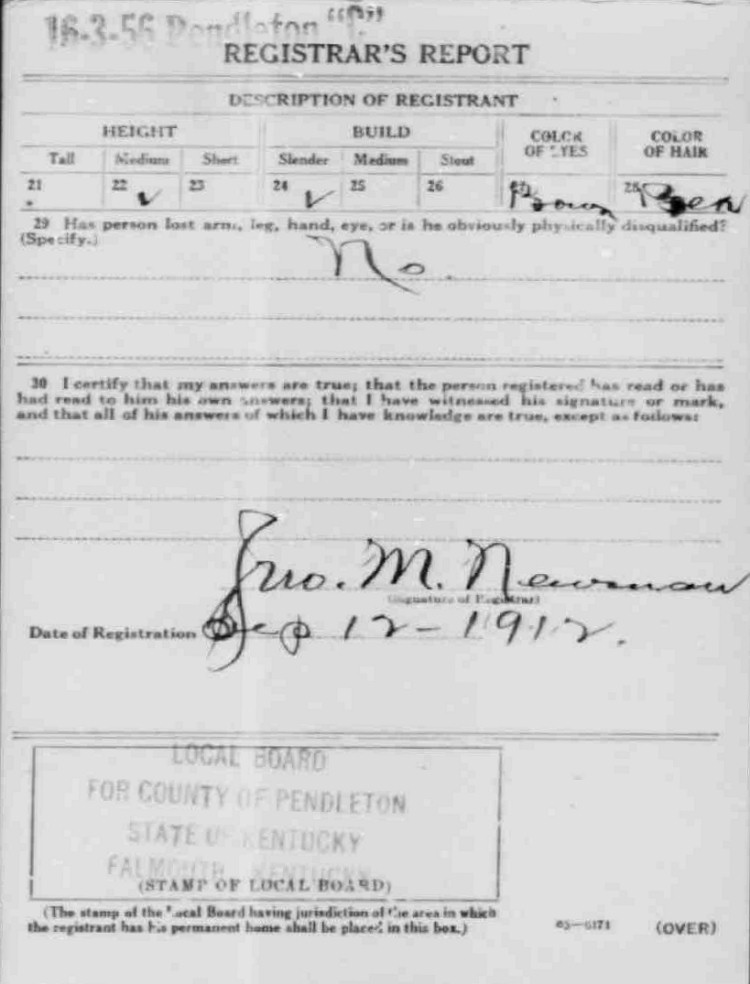 16-3-56 Pendleton "C"
REGISTRAR'S REPORT
DESCRIPTION OF REGISTRANT
HEIGHT BUILD COLOR OF EYES COLOR OF HAIR
Tall Medium Short Slender Medium Stout
21 22 ✓ 23 24 ✓ 25 26 27 Brown 28
29 Has person lost arm, leg, hand, eye, or is he obviously physically disqualified?
(Specify.)
No.
30 I certify that my answers are true; that the person registered has read or has
had read to him his own answers; that I have witnessed his signature or mark,
and that all of his answers of which I have knowledge are true, except as follows:
Jno. M. Newman
(Signature of Registrar)
Date of Registration Sep 12-1912.
LOCAL BOARD
FOR COUNTY OF PENDLETON
STATE OF KENTUCKY
FALMOUTH, KENTUCKY
(STAMP OF LOCAL BOARD)
(The stamp of the Local Board having jurisdiction of the area in which
the registrant has his permanent home shall be placed in this box.)
03-6171 (OVER)